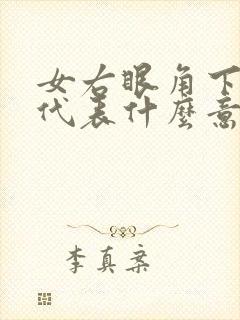 女右眼角下
代表什麼意
李真案